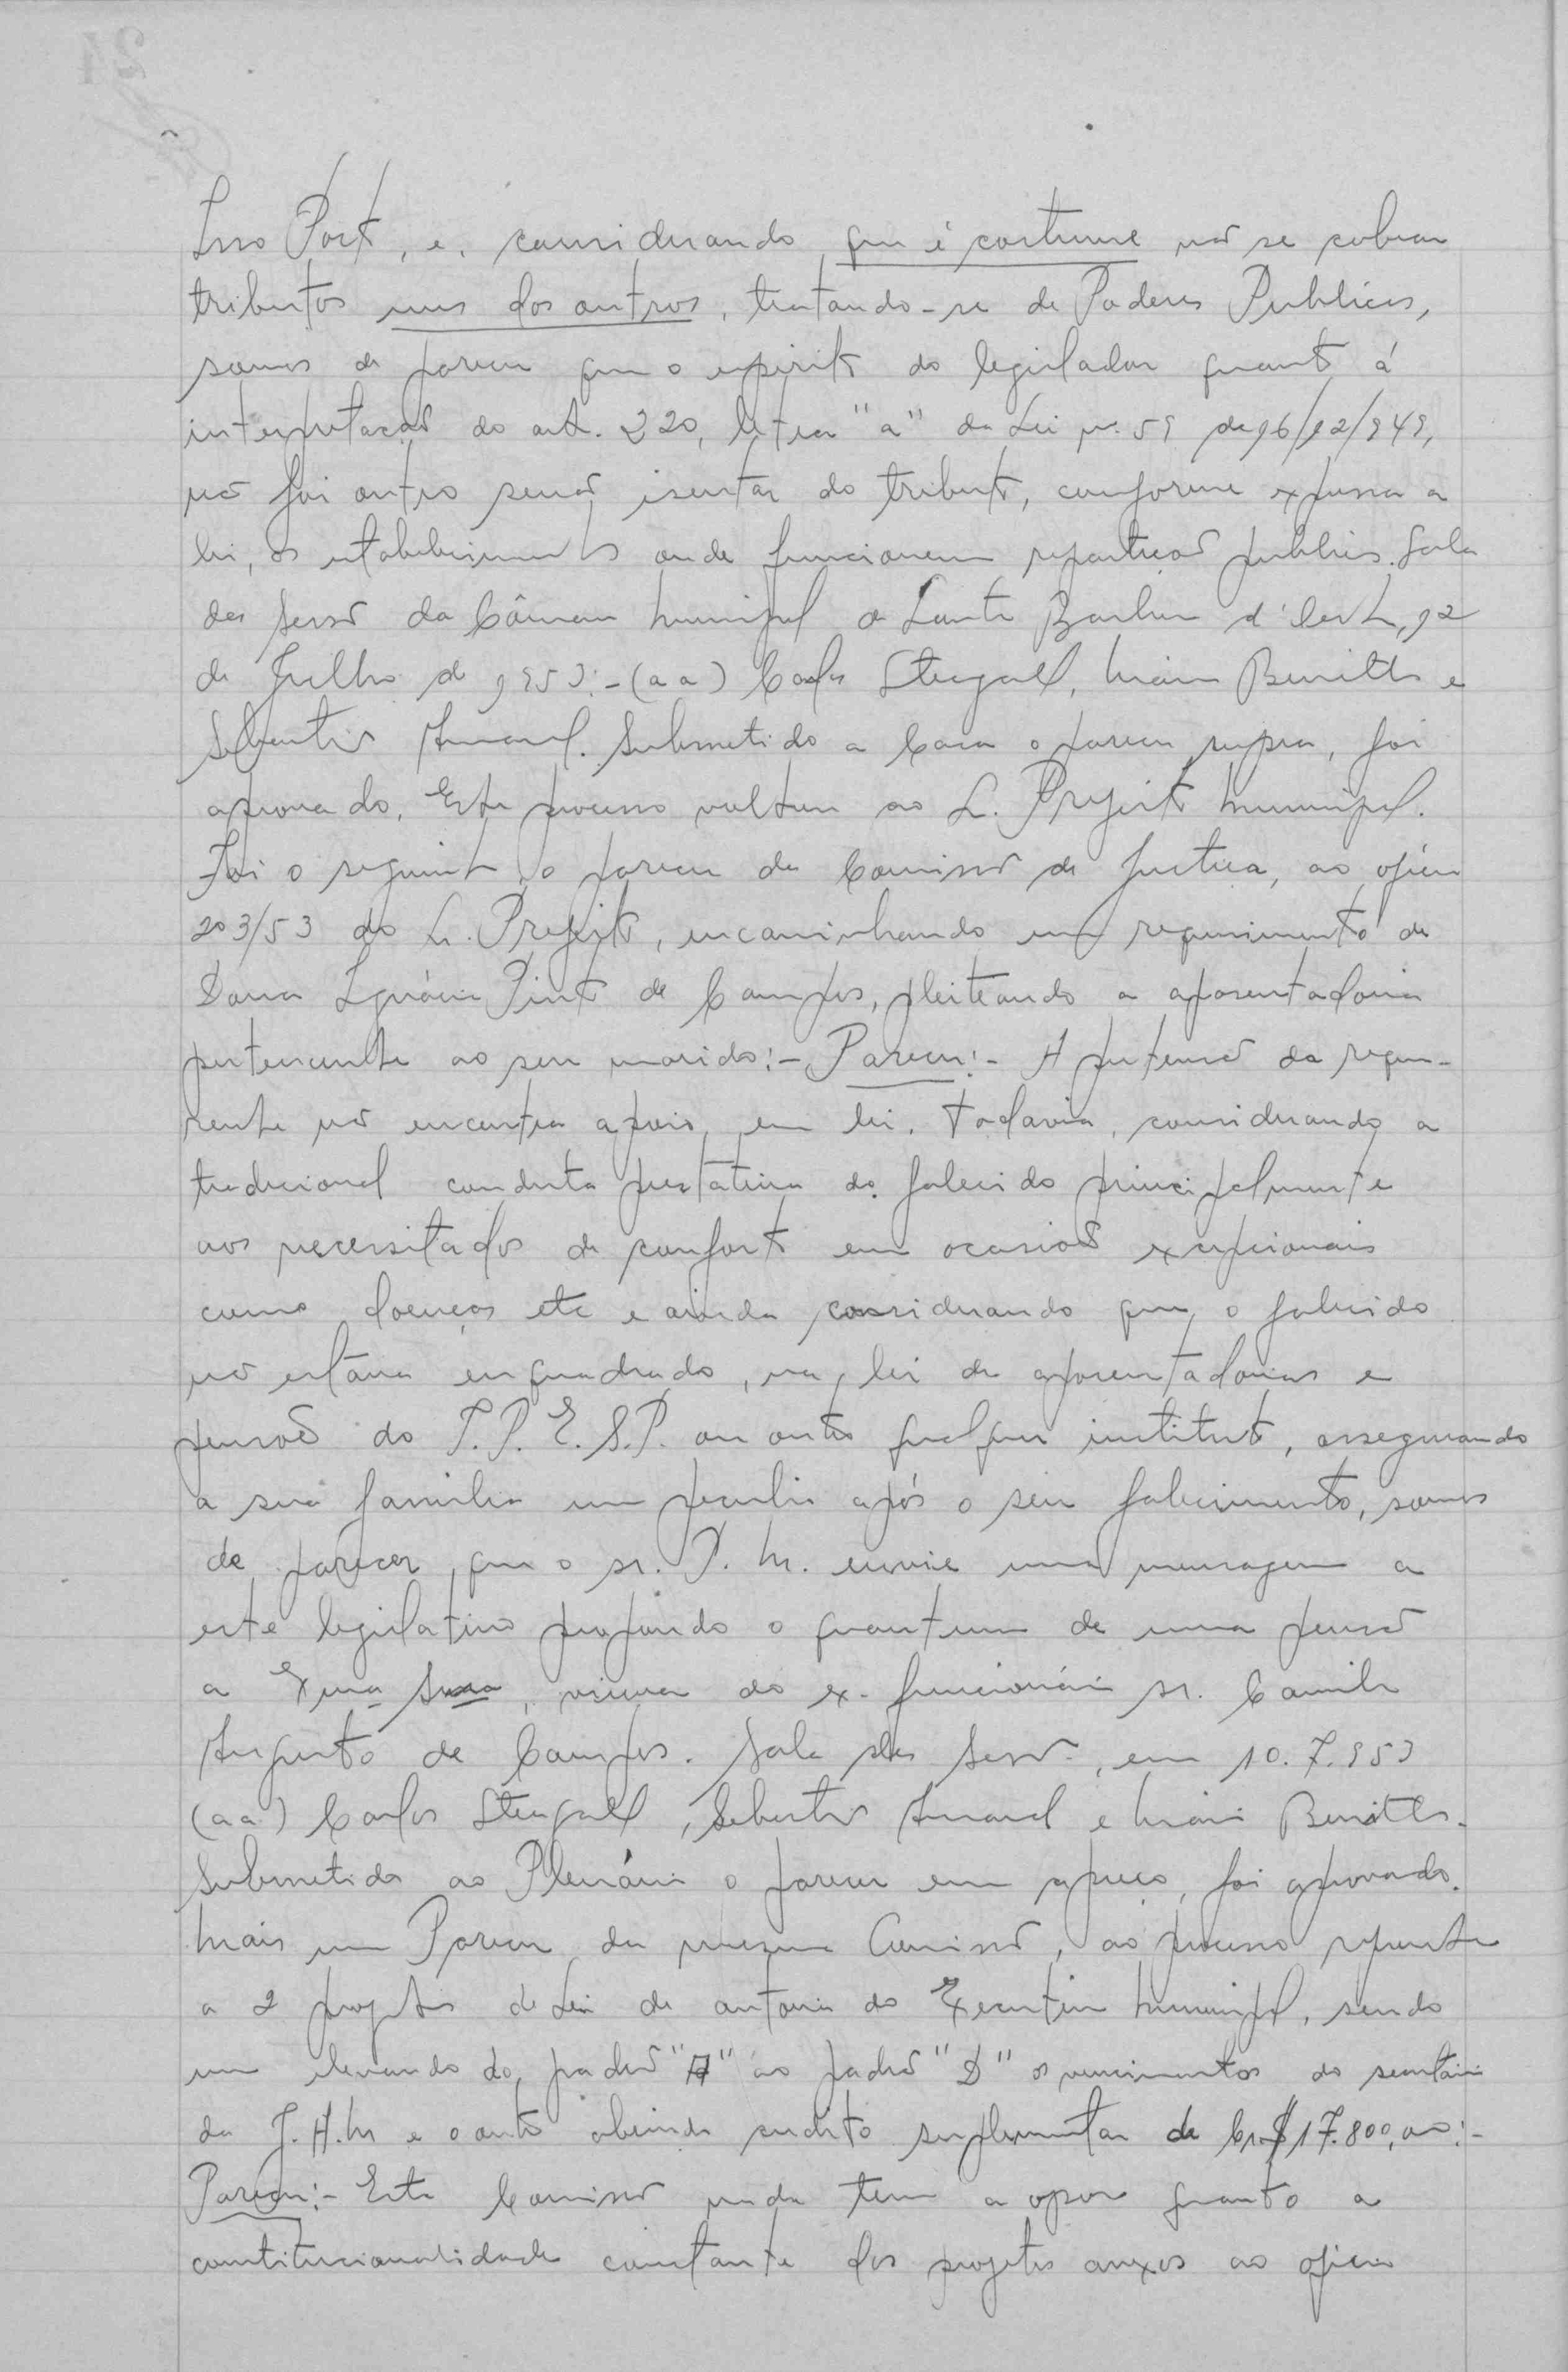 Isso Posto, e, considerando que é costume não se cobrar
tributos uns dos outros, tratando-se de Poderes Publicos,
somos de parecer que o espirito do legislador quanto á
interpretação do art. 220, letra "a" da Lei nº 59 de 16/12/949,
não foi outro senão isentar do tributo, conforme expressa a
lei, os estabelecimentos onde funcionem repartições publicas. Sala
das Sessões da Câmara Municipal de Santa Barbara d'Oeste, 12
de Julho de 1953:-(aa) Carlos Steagall, Mário Benitto e
Sebastião Amaral. Submetido a Casa o parecer supra, foi
aprovado. Este processo voltou ao S. Prefeito Municipal.
Foi o seguinte o parecer da Comissão de Justiça, ao ofício
203/53 do Sr. Prefeito, encaminhando um requerimento de
Dona Ignácia Pinto de Campos, pleiteando a aposentadoria
pertencente ao seu marido:- Parecer:- A pretensão da reque-
rente não encontra apoio em lei. Todavia, considerando a
tradicional conduta prestativa do falecido principalmente
aos necessitados de conforto em ocasiões excepcionais
como doenças etc e ainda considerando que o falecido
não estava enquadrado, na lei de aposentadorias e
pensões do I.P.E.S.P. ou outro qualquer instituto, assegurando
a sua familia um peculio após o seu falecimento, somos
de parecer que o sr. P. M. envie uma mensagem a
este legislativo propondo o quantum de uma pensão
a Exma Snra, viuva do ex-funcionário sr. Camilo
Augusto de Campos. Sala das Sessões, em 10.7.953
(aa) Carlos Steagall, Sebastião Amaral e Mário Benitto.
Submetido ao Plenário o parecer em apreço, foi aprovado.
Mais um Parecer da mesma Comissão, ao processo referente
a 2 projetos de Lei de autoria do Executivo Municipal, sendo
um elevando do padrão "A" ao padrão "D" os vencimentos do secretário
da J.A.M e o outro abrindo credito suplementar de Cr$ 17.800,00:-
Parecer:- Esta Comissão nada tem a opor quanto a
constitucionalidade constante dos projetos anexos ao oficio